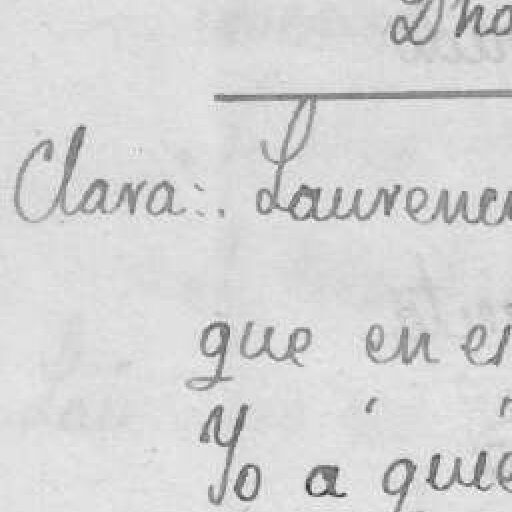 Dho
Clara:. Laurenci
que en e
Yo a quie